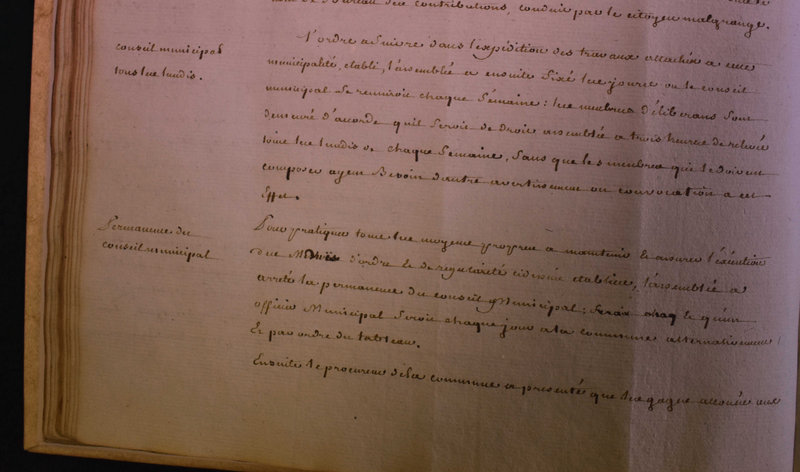 des contributions, conduit par le citoyen malgrange.
conseil municipal
tous les lundis.
L'ordre a suivre dans l'expédition des travaux attachés a cette
municipalité, etabli, l'assemblée a ensuite fixé les jours ou le conseil
municipal se reuniroit chaque Semaine : les membres déliberans sont
demeuré d'accorde qu'il seroit de droit assemblée a trois heures de relevé
tous les lundis de chaque Semaine, sans que les membres qui le doivent
composer ayent Besoin d'autre avertissement ou convocation a cet
Effet.
Permanence du
conseil municipal
Pour pratiquer tous les moyens propres a maintenir et assurer l'éxécution
des d'ordre et de regularité cidessus etablies, l'assemblée a
arreté la permanence du conseil Municipal ; le qu'un
officier Municipal seroit chaque jour a la commune alternativement
Et par ordre du tableau.
Ensuite le procureur de la commune a presenté que les gages accordés aux